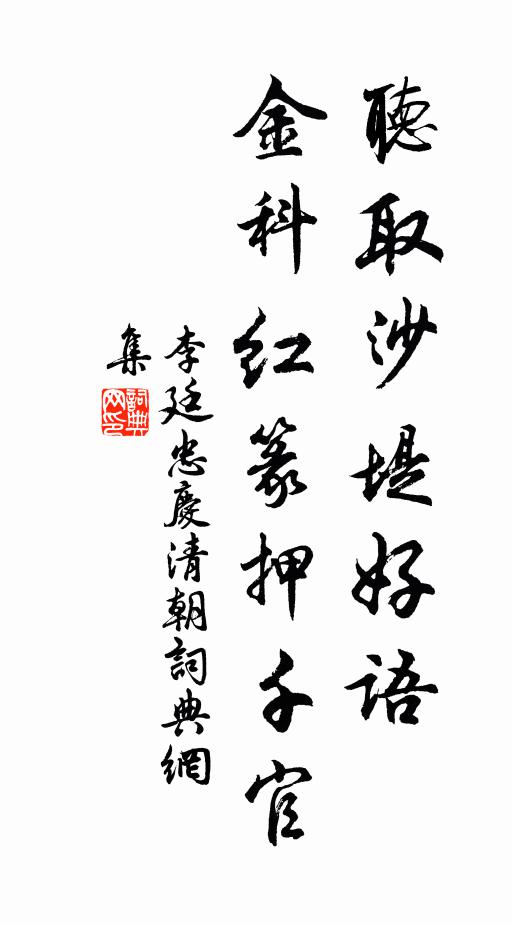 聽取沙堤好語
金科紅篆押千官
李廷忠慶清朝詞典網
集
詞典網印